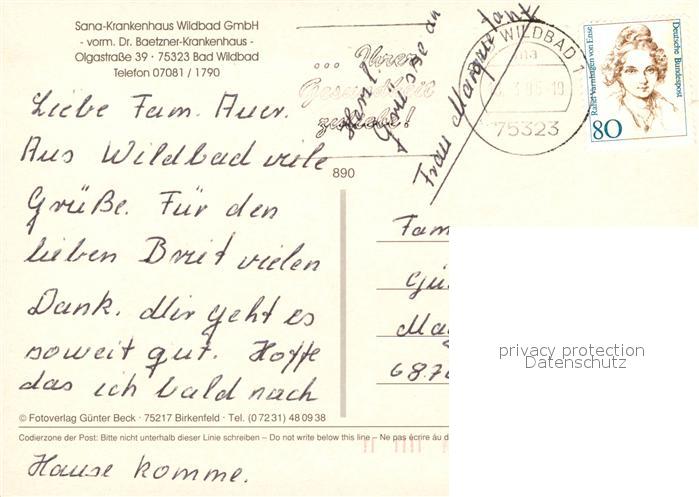 Sana-Krankenhaus Wildbad GmbH
- vorm. Dr. Baetzner-Krankenhaus -
Olgastraße 39 · 75323 Bad Wildbad
Telefon 07081 / 1790
... Ihrer
Gesundheit
zuliebe!
WILDBAD 1
75323
Rahel Varnhagen von Ense
Deutsche Bundespost
80
Herzl.
Grüsse an
Frau
890
Liebe Fam. Auer.
Aus Wildbad viele
Grüße. Für den
lieben Brief vielen
Dank. Mir geht es
soweit gut. Hoffe
das ich bald nach
Fam
© Fotoverlag Günter Beck · 75217 Birkenfeld · Tel. (0 72 31) 48 09 38
Codierzone der Post: Bitte nicht unterhalb dieser Linie schreiben – Do not write below this line – Ne pas écrire au d
Hause komme.
privacy protection
Datenschutz